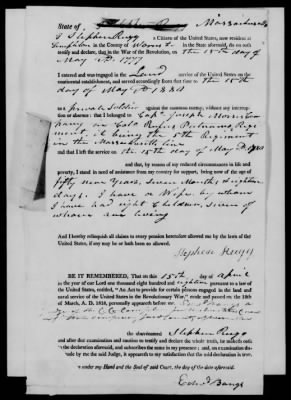 State of Massachusetts
I Stephen Rugg a Citizen of the United States, now resident at
Templeton in the County of Worcester in the State aforesaid, do on oath
testify and declare, that in the War of the Revolution, on the 15th day of
May AD. 1777
I entered and was engaged in the Land service of the United States on the
continental establishment, and served accordingly from that time to the 15th
day of May AD 1780
as a private Soldier against the common enemy, without any interrup-
tion or absence: that I belonged to Capt Joseph Com
pany in Colo Rufus Putnams Regi
ment, it being the 5th Regiment
in the Massachusetts line
and that I left the service on the 15th day of May AD 1780
and that, by reason of my reduced circumstances in life and
poverty, I stand in need of assistance from my country for support, being now of the age of
fifty nine Years, seven Months & eighteen
days. I have a Wife by whom
I have had eight Children, seven of
whom are living
And I hereby relinquish all claims to every pension heretofore allowed me by the laws of the
United States, if any may be or hath been so allowed.
Stephen Rugg
BE IT REMEMBERED, That on this 15th day of April
in the year of our Lord one thousand eight hundred and eighteen pursuant to a law of
the United States, entitled, "An Act to provide for certain persons engaged in the land and
naval service of the United States in the Revolutionary War," made and passed on the 18th
of March, A. D. 1818, personally appeared before me
the abovenamed Stephen Rugg
and after due examination and caution to testify and declare the whole truth, he maketh oath to
the declaration aforesaid, and subscribes the same in my presence; and, on examination
made by me the said Judge, it appears to my satisfaction that the said declaration is true.
under my Hand and the Seal of said Court, the day of the date aforesaid.
Edwd Bangs